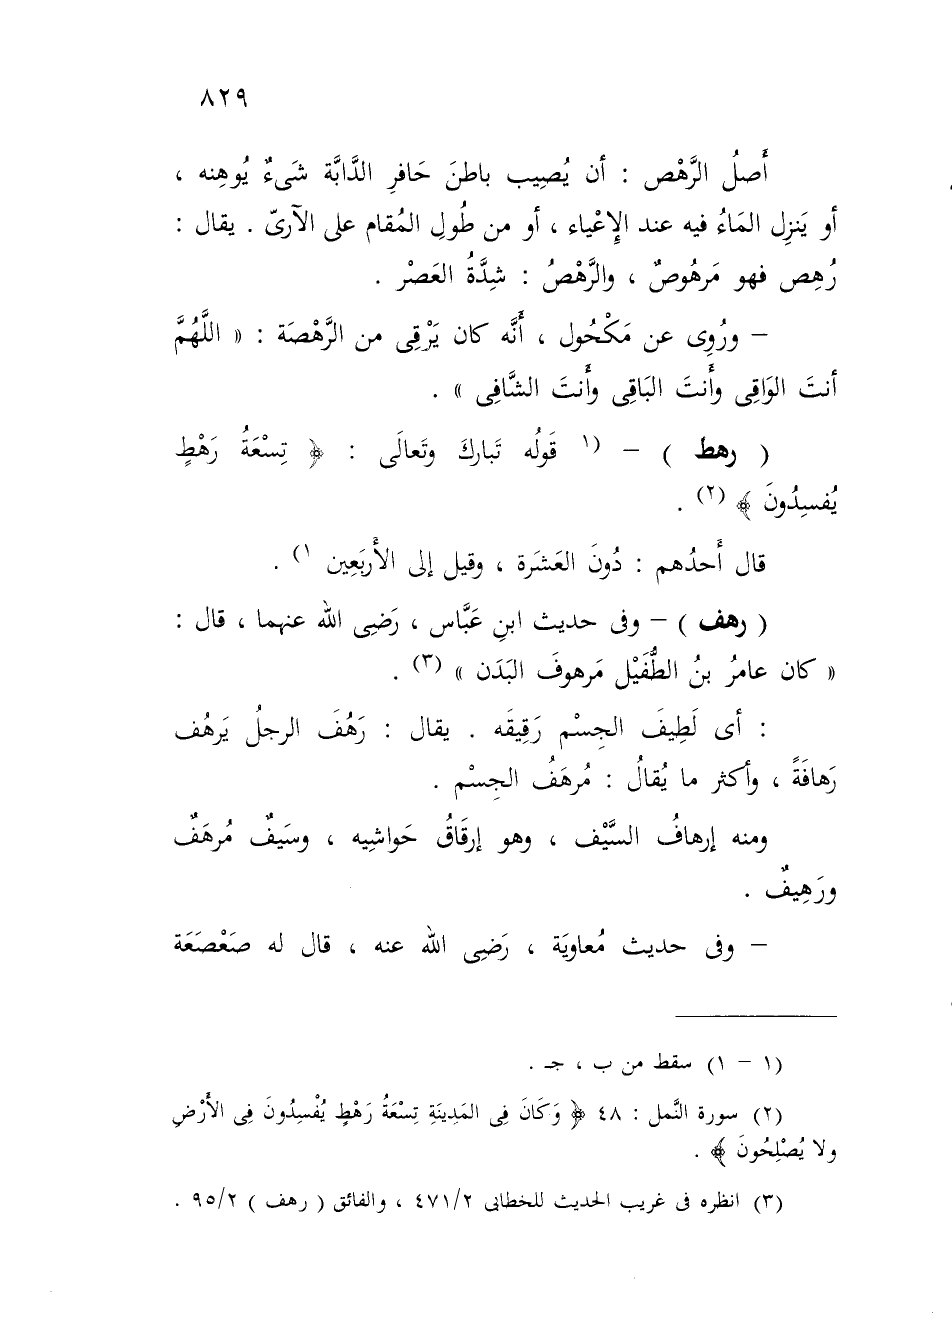 ٨٢٩
أَصلُ الرَّهْص : أن يُصِيب باطنَ حَافرِ الدَّابَّة شَىءٌ يُوهِنه ،
أو يَنزِل المَاءُ فيه عند الإِعْياء ، أو من طُولِ المُقام على الآرىّ . يقال :
رُهِص فهو مَرهُوصٌ ، والرَّهْصُ : شِدَّةُ العَصْر .
– ورُوِى عن مَكْحُول ، أَنَّه كان يَرْقِى من الرَّهْصَة : « اللَّهُمَّ
أنتَ الوَاقِى وأَنتَ البَاقِى وأَنتَ الشَّافِى » .
( رهط ) – (١ قَولُه تَبارك وتَعالَى : ﴿ تِسْعَةُ رَهْطٍ
يُفسِدُونَ ﴾ (٢) .
قال أَحدُهم : دُونَ العَشَرة ، وقيل إلى الأَربَعِين ١) .
( رهف ) – وفى حديث ابنِ عَبَّاس ، رَضِى الله عنهما ، قال :
« كان عامرُ بنُ الطُّفَيْل مَرهوفَ البَدَن » (٣) .
: أى لَطِيفَ الجِسْم رَقِيقَه . يقال : رَهُفَ الرجلُ يَرهُف
رَهافَةً ، وأكثر ما يُقالُ : مُرهَفُ الجِسْم .
ومنه إرهافُ السَّيْف ، وهو إرقَاقُ حَواشِيه ، وسَيفٌ مُرهَفٌ
ورَهِيفٌ .
– وفى حديث مُعاويَة ، رَضِى الله عنه ، قال له صَعْصَعَة
(١ – ١) سقط من ب ، جـ .
(٢) سورة النَّمل : ٤٨ ﴿ وَكَانَ فِى المَدِينَةِ تِسْعَةُ رَهْطٍ يُفْسِدُونَ فِى الأَرْضِ
ولا يُصْلِحُونَ ﴾ .
(٣) انظره فى غريب الحديث للخطابى ٤٧١/٢ ، والفائق ( رهف ) ٩٥/٢ .